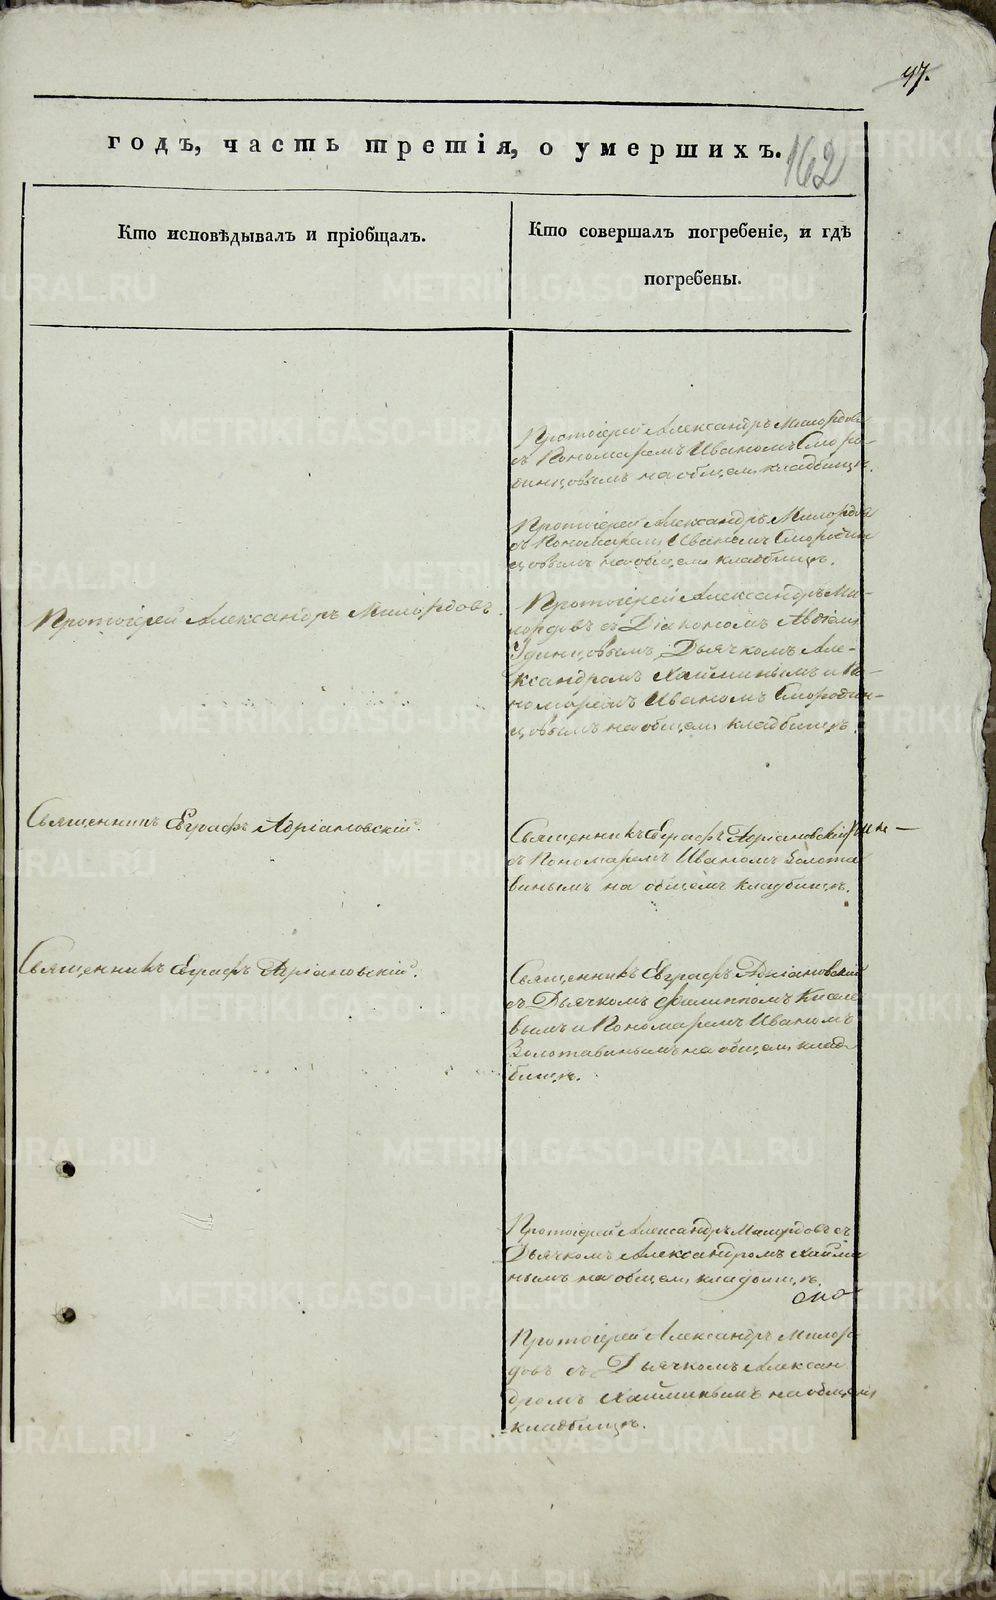 97.
годъ, часть третія, о умершихъ.
162
Кто исповѣдывалъ и пріобщалъ.
Кто совершалъ погребеніе, и гдѣ
погребены.
Протоіерей Александръ Милордовъ
съ Пономаремъ Иваномъ Сморо-
динцовымъ на общемъ кладбищѣ.
Протоіерей Александръ Милордовъ
съ Пономаремъ Иваномъ Смородин
цовымъ на общемъ кладбищѣ.
Протоіерей Александръ Милордовъ.
Протоіерей Александръ Ми-
лордовъ съ Діакономъ Авдіемъ
Удинцовымъ, Дьячкомъ Але-
ксандромъ Хайминымъ и По-
номаремъ Иваномъ Смородин-
цовымъ на общемъ кладбищѣ.
Священникъ Евграфъ Адріановскій.
Священникъ Евграфъ Адріановскій
съ Пономаремъ Иваномъ Золота
винымъ на общемъ кладбищѣ.
Священникъ Евграфъ Адріановскій.
Священникъ Евграфъ Адріановскій
съ Дьячкомъ Филиппомъ Киселе
вымъ и Пономаремъ Иваномъ
Золотавинымъ на общемъ клад-
бищѣ.
Протоіерей Александръ Милордовъ съ
Дьячкомъ Александромъ Хайми
нымъ на общемъ кладбищѣ.
Протоіерей Александръ Милор-
довъ съ Дьячкомъ Алексан
дромъ Хайминымъ на общемъ
кладбищѣ.
METRIKI.GASO-URAL.RU